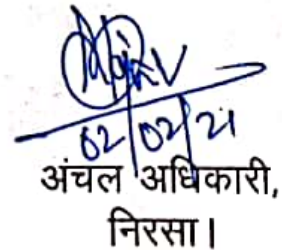 02/02/21
अंचल अधिकारी,
निरसा।